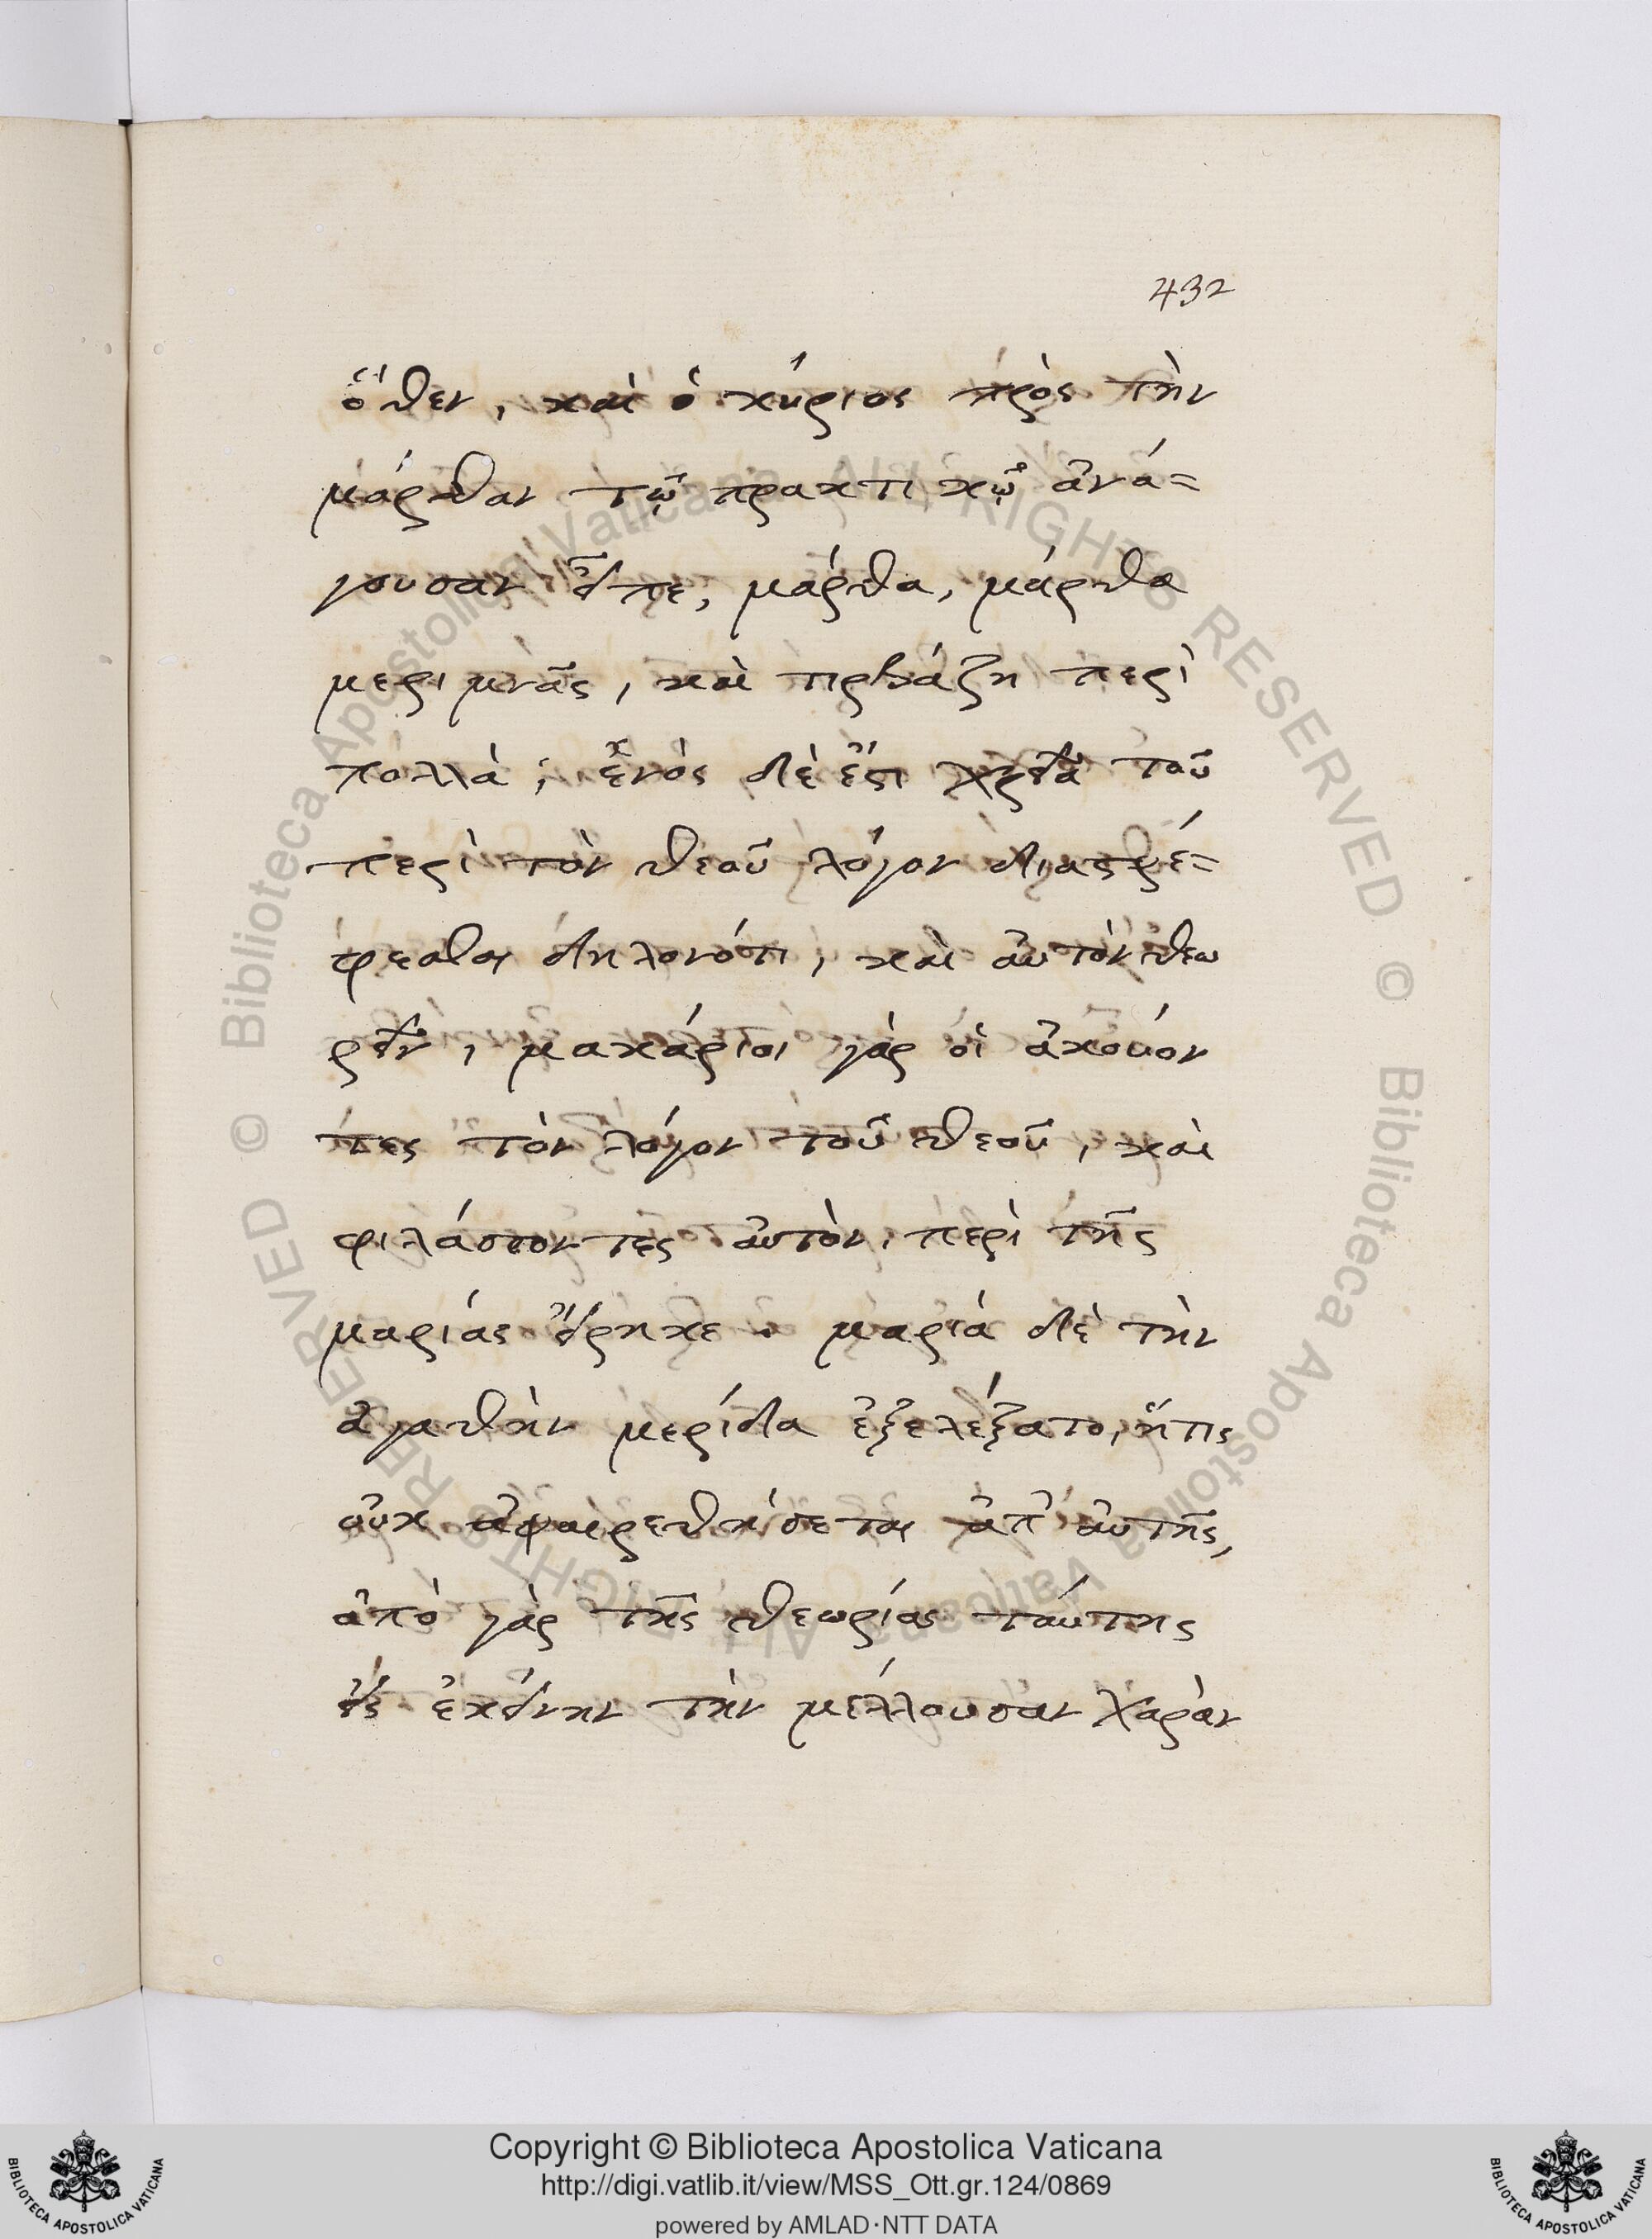 432
ὅθεν, καὶ ὁ κύριος πρὸς τὴν
μάρθαν τῷ πρακτικῷ ἀνά=
γουσαν εἶπε, μάρθα, μάρθα
μεριμνᾶς, καὶ τιρβάζη περὶ
πολλὰ; ἑνὸς δὲ ἔστι χρεῖα τοῦ
περὶ τὸν θεοῦ λόγον διαστρέ=
φεσθαι δηλονότι, καὶ αὐτὸν θεω
ρεῖν, μακάριοι γὰρ οἱ ἀκούον
τες τὸν λόγον τοῦ θεοῦ, καὶ
φιλάσσοντες αὐτὸν, περὶ τῆς
μαρίας εἴρηκε · μαρία δὲ τὴν
ἀγαθὴν μερίδα ἐξελέξατο, ἥτις
οὐκ ἀφαιρεθήσεται ἀπ' αὐτῆς,
ἀπὸ γὰρ τῆς θεωρίας ταύτης
εἰς ἐκείνην τὴν μέλλουσαν χαρὰν
Copyright © Biblioteca Apostolica Vaticana
http://digi.vatlib.it/view/MSS_Ott.gr.124/0869
powered by AMLAD·NTT DATA
BIBLIOTECA APOSTOLICA VATICANA
BIBLIOTECA APOSTOLICA VATICANA
© Biblioteca Apostolica Vaticana ALL RIGHTS RESERVED © Biblioteca Apostolica Vaticana ALL RIGHTS RESERVED